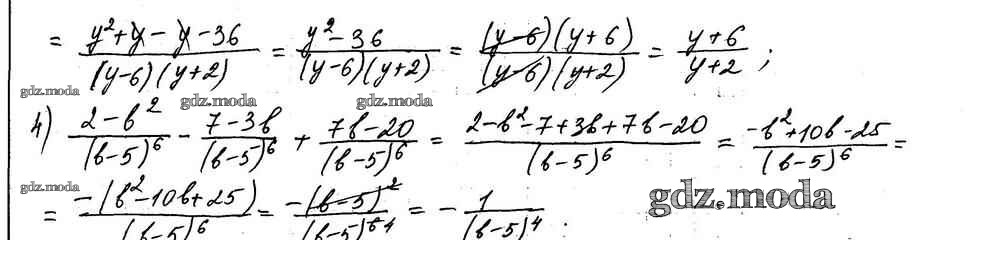 = (y²+y-y-36)/((y-6)(y+2)) = (y²-36)/((y-6)(y+2)) = ((y-6)(y+6))/((y-6)(y+2)) = (y+6)/(y+2) ;
gdz.moda gdz.moda gdz.moda
4) (2-b²)/(b-5)⁶ - (7-3b)/(b-5)⁶ + (7b-20)/(b-5)⁶ = (2-b²-7+3b+7b-20)/(b-5)⁶ = (-b²+10b-25)/(b-5)⁶ =
gdz.moda gdz.moda
= (-(b²-10b+25))/(b-5)⁶ = (-(b-5)²)/(b-5)⁶ ⁴ = - 1/(b-5)⁴ .